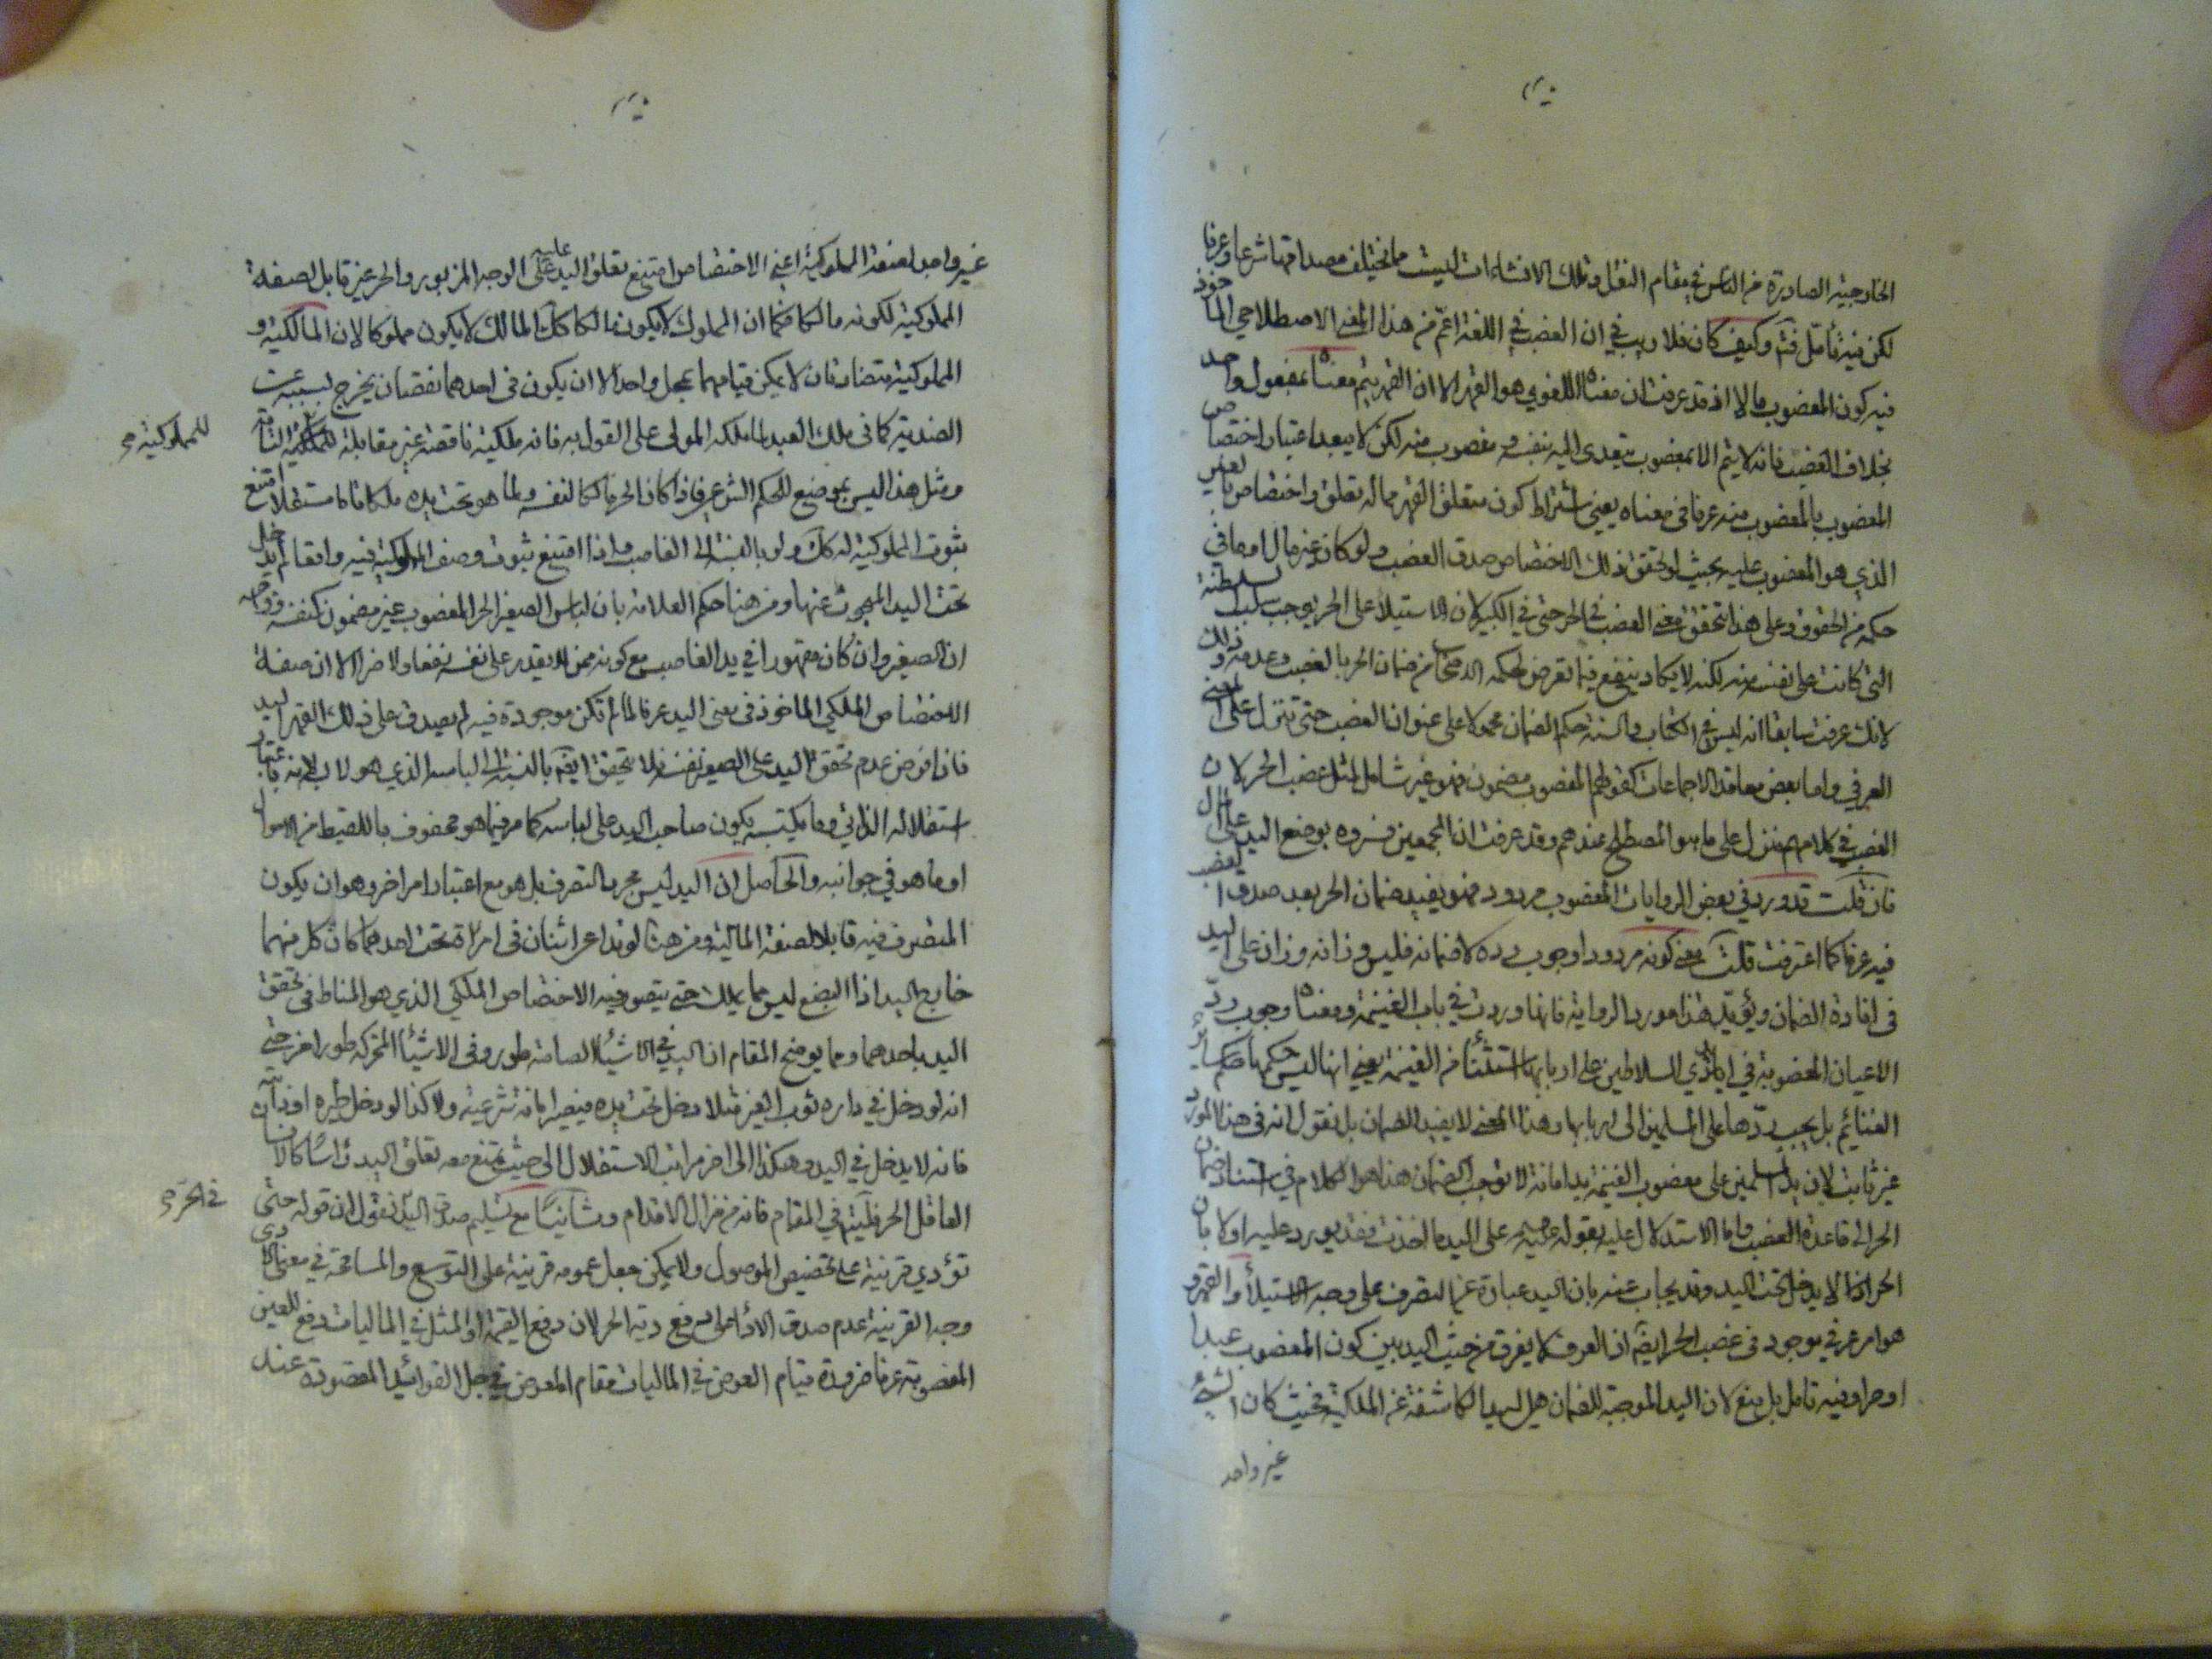 الخارجية الصادرة من الناس في مقام النقل وتلك الانشاءات ليست مما تختلف مصداقها شرعا وعرفا
لكن فيه تأمل فتم وكيف كان فلا ريب في ان الغصب في اللغة اعم من هذا المعنى الاصطلاحي الماخوذ
فيه كون المغصوب مالا اذ قد عرفت ان معناه اللغوي هو القهر الا ان القهر يتم معناه بمفعول واحد
بخلاف الغصب فانه لا يتم الا بمغصوب يتعدى اليه بنفسه ومغصوب منه لكن لا يبعد اعتبار اختصاص
المغصوب بالمغصوب منه عرفا في معناه يعني اشتراط كون متعلق القهر مما له تعلق واختصاص بالغير
الذي هو المغصوب عليه بحيث لو تحقق ذلك الاختصاص صدق الغصب ولو كان غير مال او ما في
حكمه من الحقوق وعلى هذا يتحقق معنى الغصب في الحر حتى في الكبير لان الاستيلاء على الحر يوجب سلب سلطنته
التي كانت على نفسه منه لكنه لا يكاد ينفع فيما تعرض لحكمه الاصحاب من ضمان الحر بالغصب وعدمه وذلك
لانك عرفت سابقا انه ليس في الكتاب والسنة حكم الضمان محمولا على عنوان الغصب حتى تنزل على المعنى
العرفي واما بعض معاقد الاجماعات كقولهم المغصوب مضمون فهو غير شامل لمثل غصب الحر لان
الغصب في كلامهم منزل على ما هو المصطلح عندهم وقد عرفت ان المجمعين فسروه بوضع اليد على المال
فان قلت قد ورد في بعض الروايات المغصوب مردود فهو يفيد ضمان الحر بعد صدق الغصب
فيه عرفا كما اعترفت قلت معنى كونه مردودا وجوب رده لا ضمانه فليس وزانه وزان على اليد
في افادة الضمان ويؤيد هذا مورد الرواية فانها وردت في باب الغنيمة ومعناه وجوب رد
الاعيان المغصوبة في ايادي السلاطين على اربابها استثناء من الغنيمة يعني انها ليس حكمها حكم سائر
الغنائم بل يجب ردها على المسلمين الى اربابها وهذا المعنى لا يفيد الضمان بل نقول انه في هذا المورد
غير ثابت لان يد المسلمين على مغصوب الغنيمة يد امانة لا توجب الضمان هذا هو الكلام في استناد ضمان
الحر الى قاعدة الغصب واما الاستدلال عليه بقوله على اليد ما اخذت فقد يورد عليه اولا بان
الحر لا يدخل تحت اليد وقد يجاب عنه بان اليد عبارة عن التصرف على وجه الاستيلاء والقهر و
هو امر عرفي موجود في غصب الحر ايضا اذ العرف لا يفرق من حيث اليد بين كون المغصوب عبدا
او حرا وفيه تامل بل منع لان اليد الموجبة للضمان هي اليد الكاشفة عن الملكية فحيث كان الشيء
غير واحد
غير واجد لصفة المملوكية اعني الاختصاص امتنع تعلق اليد عليه على الوجه المزبور والحر غير قابل لصفة
المملوكية لكونه مالكا فكما ان المملوك لا يكون مالكا كك المالك لا يكون مملوكا لان المالكية و
المملوكية متضادتان لا يمكن قيامهما بمحل واحد الا ان يكون في احدهما نقصان يخرج بسببه عن
الضدية كما في ملك العبد لما ملكه المولى على القول به فانه ملكية ناقصة غير مقابلة للمملوكية التامة
للمملوكية صح
ومثل هذا ليس بموضع للحكم الشرعي فاذا كان الحر مالكا لنفسه ولما هو تحت يده ملكا تاما مستقلا امتنع
ثبوت المملوكية له كك ولو بالنسبة الى الغاصب واذا امتنع ثبوت وصف المملوكية فيه واقعا لم يدخل
تحت اليد المبحوث عنها ومن هنا حكم العلامة بان لباس الصغير الحر المغصوب غير مضمون كنفسه
اذ الصغير وان كان مقهورا في يد الغاصب مع كونه ممن لا يقدر على نفسه نفعا ولا ضرا الا ان صفة
الاختصاص الملكي الماخوذ في معنى اليد عرفا لما لم تكن موجودة فيه لم يصدق على ذلك القهر اليد
فاذا فرض عدم تحقق اليد على الصغير نفسه فلا يتحقق ايضا بالنسبة الى لباسه الذي هو لابسه باعتبار
استقلاله الذاتي وما يكتسبه يكون صاحب اليد على لباسه كما مر فيما هو محفوف باللقيط من الاموال
او ما هو في جوانبه والحاصل ان اليد ليس مجرد التصرف بل هو مع اعتبار امر اخر وهو ان يكون
المتصرف فيه قابلا لصفة المالية ومن هنا لو تداعى اثنان في امراة تحت احدهما كان كل منهما
خارج اليد اذ البضع ليس مما يملك حتى يتصور فيه الاختصاص الملكي الذي هو المناط في تحقق
اليد باحدهما ومما يوضح المقام ان اليد في الاشياء الصامتة طور وفي الاشياء المتحركة طور اخر حتى
انه لو دخل في داره ثوب الغير مثلا دخل تحت يده فيصير امانة شرعية ولا كذا لو دخل طيره او دابته
فانه لا يدخل في اليد وهكذا الى اخر مراتب الاستقلال الى حيث يمتنع معه تعلق اليد راسا كالانسان
العاقل الحر فليتم في المقام فانه من مزال الاقدام وثانيا مع تسليم صدق اليد نقول ان قوله حتى
في الحر صح
تؤدي قرينة على تخصيص الموصول ولا يمكن جعل عمومه قرينة على التوسع والمسامحة في معنى تؤدي
وجه القرينة عدم صدق الاداء على دفع دية الحر لان دفع القيمة او المثل في الماليات دفع للعين
المغصوبة عرفا ضرورة قيام العوض في الماليات مقام المعوض في جل الفوائد المقصودة عند